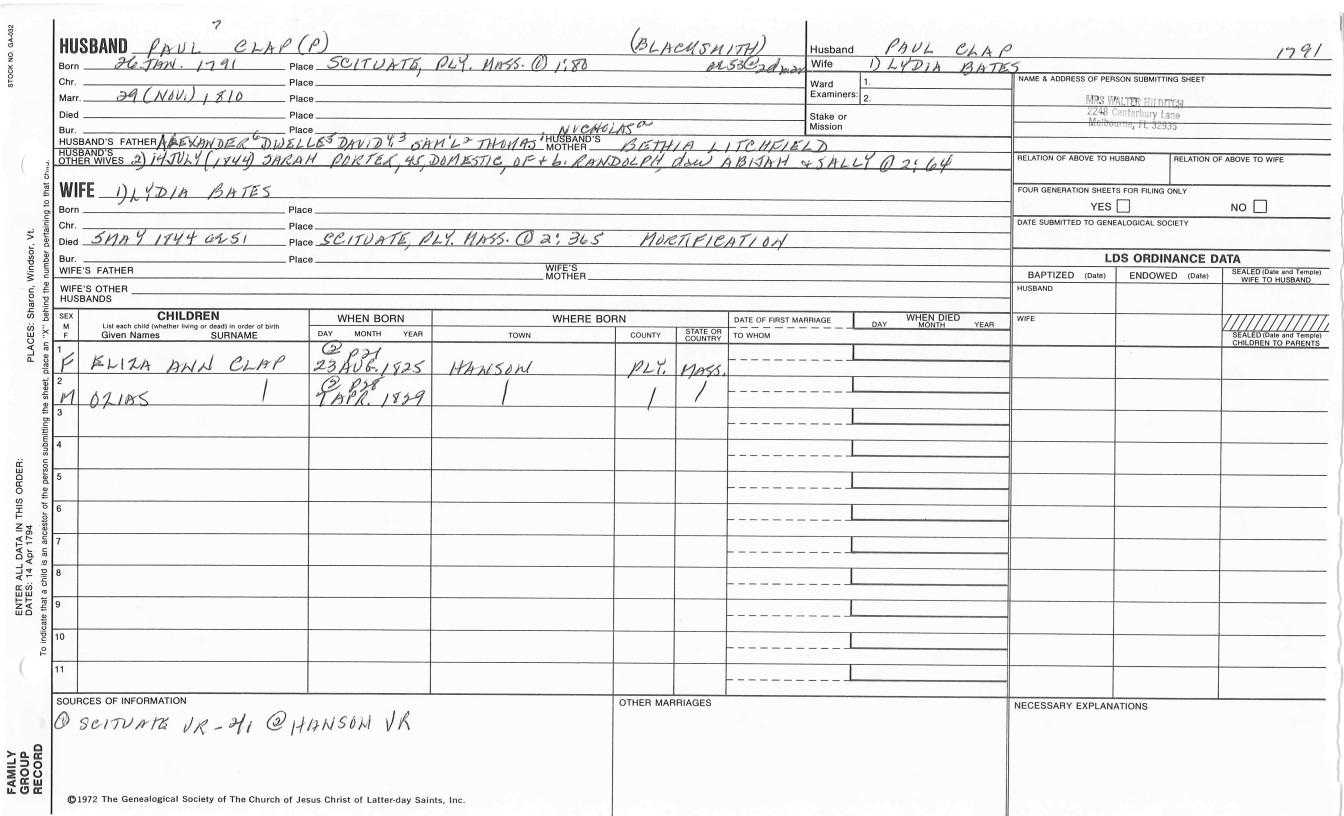 7
HUSBAND PAUL CLAP(P) (BLACKSMITH)
Born 26 JAN. 1791 Place SCITUATE, PLY. MASS. ① 1:80 ae 53@2d mar
Chr. Place
Marr. 29 (NOV.) 1810 Place
Died Place
Bur. Place
NICHOLAS a
HUSBAND'S FATHER ALEXANDER 6 DWELLE 5 DAVID 4,3 SAM'L 2 THOMAS 1 HUSBAND'S MOTHER BETHIA LITCHFIELD
HUSBAND'S OTHER WIVES 2) 14 JULY (1844) SARAH PORTER, 45, DOMESTIC, OF + b. RANDOLPH, daw ABIJAH + SALLY ① 2:64
WIFE 1) LYDIA BATES
Born Place
Chr. Place
Died 5 MAY 1844 ae 51 Place SCITUATE, PLY. MASS. ① 2:365 MORTIFICATION
Bur. Place
WIFE'S FATHER WIFE'S MOTHER
WIFE'S OTHER HUSBANDS
Husband PAUL CLAP 1791
Wife 1) LYDIA BATES
Ward Examiners: 1.
2.
Stake or Mission
NAME & ADDRESS OF PERSON SUBMITTING SHEET
MRS WALTER HILDITCH
2248 Canterbury Lane
Melbourne, FL 32935
RELATION OF ABOVE TO HUSBAND RELATION OF ABOVE TO WIFE
FOUR GENERATION SHEETS FOR FILING ONLY
YES NO
DATE SUBMITTED TO GENEALOGICAL SOCIETY
LDS ORDINANCE DATA
BAPTIZED (Date) ENDOWED (Date) SEALED (Date and Temple) WIFE TO HUSBAND
HUSBAND
WIFE
SEALED (Date and Temple) CHILDREN TO PARENTS
SEX M F
CHILDREN
List each child (whether living or dead) in order of birth
Given Names SURNAME
WHEN BORN
DAY MONTH YEAR
WHERE BORN
TOWN COUNTY STATE OR COUNTRY
DATE OF FIRST MARRIAGE
TO WHOM
WHEN DIED
DAY MONTH YEAR
1 ② P21
F ELIZA ANN CLAP 23 AUG. 1825 HANSON PLY. MASS.
2 ② P28
M OZIAS 7 APR. 1829
3
4
5
6
7
8
9
10
11
SOURCES OF INFORMATION
① SCITUATE VR - 2/1 ② HANSON VR
OTHER MARRIAGES
NECESSARY EXPLANATIONS
©1972 The Genealogical Society of The Church of Jesus Christ of Latter-day Saints, Inc.
STOCK NO. GA-032
PLACES: Sharon, Windsor, Vt.
To indicate that a child is an ancestor of the person submitting the sheet, place an "X" behind the number pertaining to that
ENTER ALL DATA IN THIS ORDER:
DATES: 14 Apr 1794
FAMILY GROUP RECORD